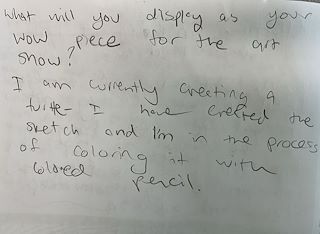 What will you display as your
wow piece for the art
show?
I am currently creating a
turtle - I have created the
sketch and I'm in the process
of coloring it with
colored pencil.